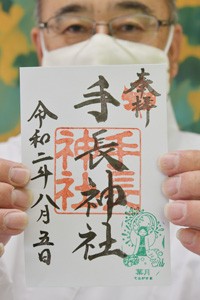 奉拝
手長神社
手長
神社
令和二年八月五日
葉月